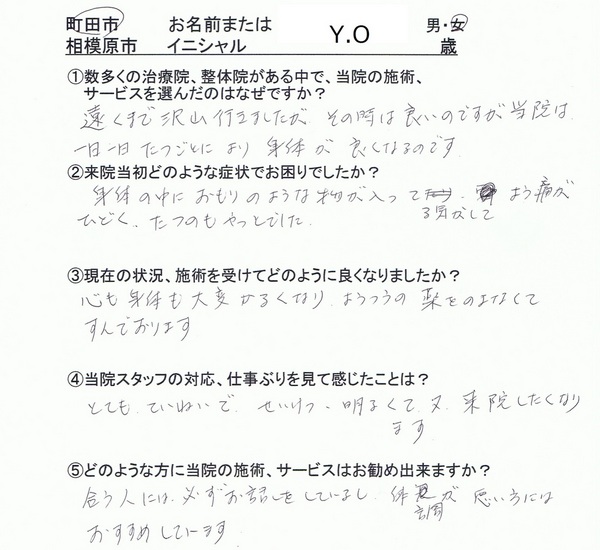 町田市 お名前または Y.O 男・女
相模原市 イニシャル 歳
①数多くの治療院、整体院がある中で、当院の施術、
サービスを選んだのはなぜですか？
遠くまで沢山行きましたが その時は良いのですが当院は
一日一日 たつごとにより 身体が 良くなるのです
②来院当初どのような症状でお困りでしたか？
身体の中に おもりのような物が入って よう痛が
る気がして
ひどく、たつのもやっとでした
③現在の状況、施術を受けてどのように良くなりましたか？
心も身体も大変かるくなり ようつうの 薬をのまなくて
すんでおります
④当院スタッフの対応、仕事ぶりを見て感じたことは？
とても、ていねいで、せいけつ、明るくて、又、来院したくなり
ます
⑤どのような方に当院の施術、サービスはお勧め出来ますか？
合う人には、必ずお話しをしているし、体 が 悪い方には
調
おすすめしています